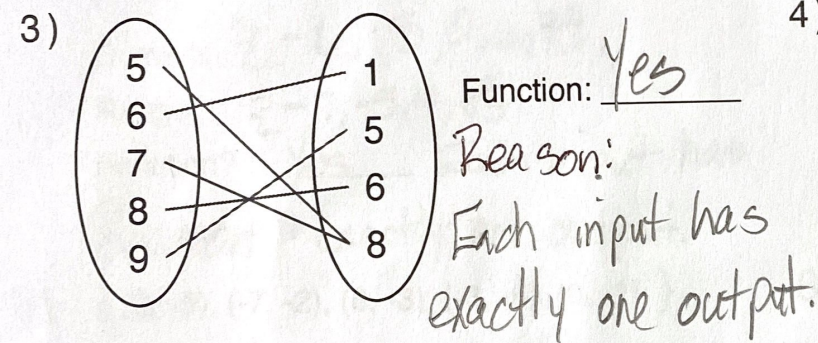 3)
4)
5
6
7
8
9
1
5
6
8
Function: Yes
Reason:
Each input has
exactly one output.